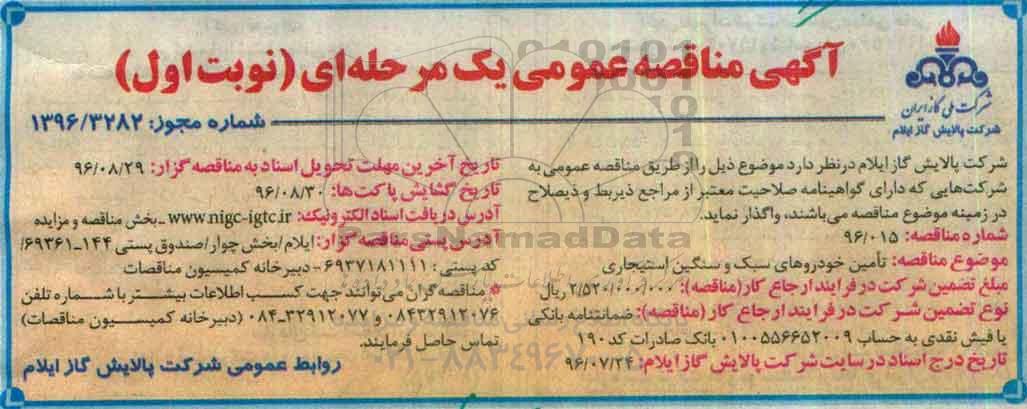 آگهی مناقصه عمومی یک مرحله‌ای (نوبت اول)
شرکت ملی گاز ایران
شرکت پالایش گاز ایلام
شماره مجوز: ۱۳۹۶/۳۲۸۲
شرکت پالایش گاز ایلام در نظر دارد موضوع ذیل را از طریق مناقصه عمومی به
شرکت‌هایی که دارای گواهینامه صلاحیت معتبر از مراجع ذیربط و ذیصلاح
در زمینه موضوع مناقصه می‌باشند، واگذار نماید.
شماره مناقصه: ۹۶/۰۱۵
موضوع مناقصه: تأمین خودروهای سبک و سنگین استیجاری
مبلغ تضمین شرکت در فرایند ارجاع کار (مناقصه): ۲/۵۲۰/۰۰۰/۰۰۰ ریال
نوع تضمین شرکت در فرایند ارجاع کار (مناقصه): ضمانتنامه بانکی
یا فیش نقدی به حساب ۰۱۰۰۵۵۶۶۵۲۰۰۹ بانک صادرات کد ۱۹۰
تاریخ درج اسناد در سایت شرکت پالایش گاز ایلام: ۹۶/۰۷/۲۴
تاریخ آخرین مهلت تحویل اسناد به مناقصه گزار: ۹۶/۰۸/۲۹
تاریخ گشایش پاکت‌ها: ۹۶/۰۸/۳۰
آدرس دریافت اسناد الکترونیک: www.nigc-igtc.ir ـ بخش مناقصه و مزایده
آدرس پستی مناقصه گزار: ایلام/بخش چوار/صندوق پستی ۱۴۴ـ۶۹۳۶۱/
کد پستی: ۶۹۳۷۱۸۱۱۱۱ - دبیرخانه کمیسیون مناقصات
* مناقصه گران می‌توانند جهت کسب اطلاعات بیشتر با شماره تلفن
۰۸۴۳۲۹۱۲۰۷۶ و ۳۲۹۱۲۰۷۷ـ۰۸۴ (دبیرخانه کمیسیون مناقصات)
تماس حاصل فرمایند.
روابط عمومی شرکت پالایش گاز ایلام
ParsNamadData